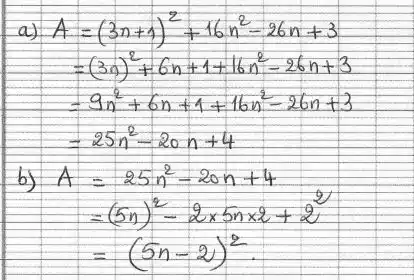 a) A = (3n+1)² + 16n² - 26n + 3
= (3n)² + 6n + 1 + 16n² - 26n + 3
= 9n² + 6n + 1 + 16n² - 26n + 3
= 25n² - 20n + 4
b) A = 25n² - 20n + 4
= (5n)² - 2 × 5n × 2 + 2²
= (5n - 2)².